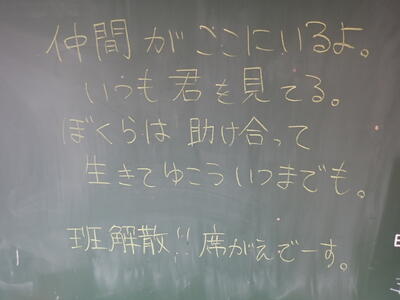 仲間がここにいるよ。
いつも君を見てる。
ぼくらは助け合って
生きてゆこういつまでも。
班解散!!席がえでーす。